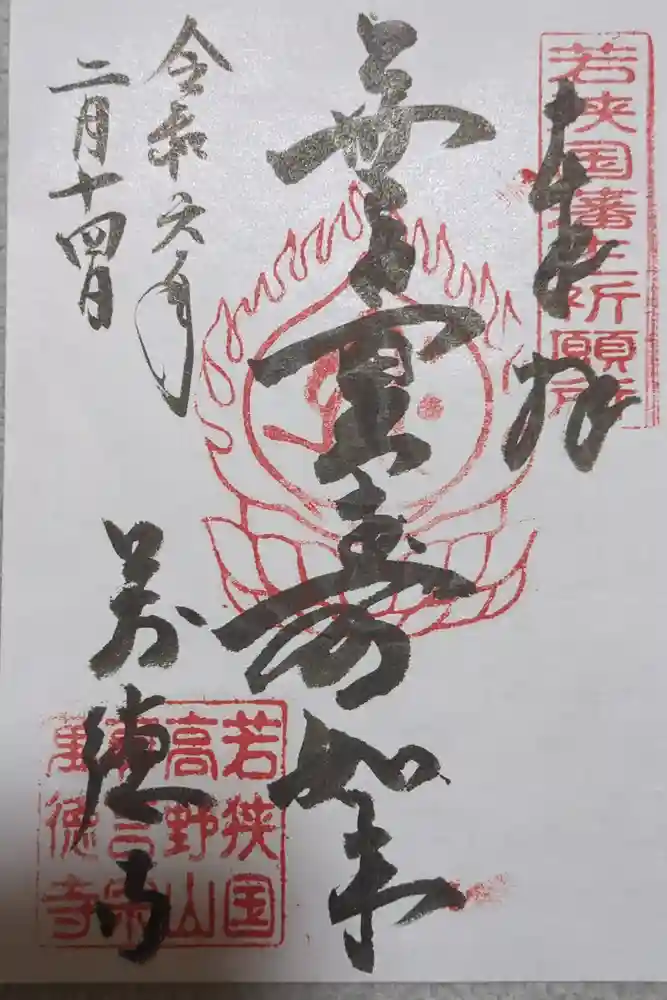 若狭国藩主祈願所
奉拝
無量壽如来
令和六年
二月十四日
萬徳寺
若狭国
高野山
真言宗
萬徳寺